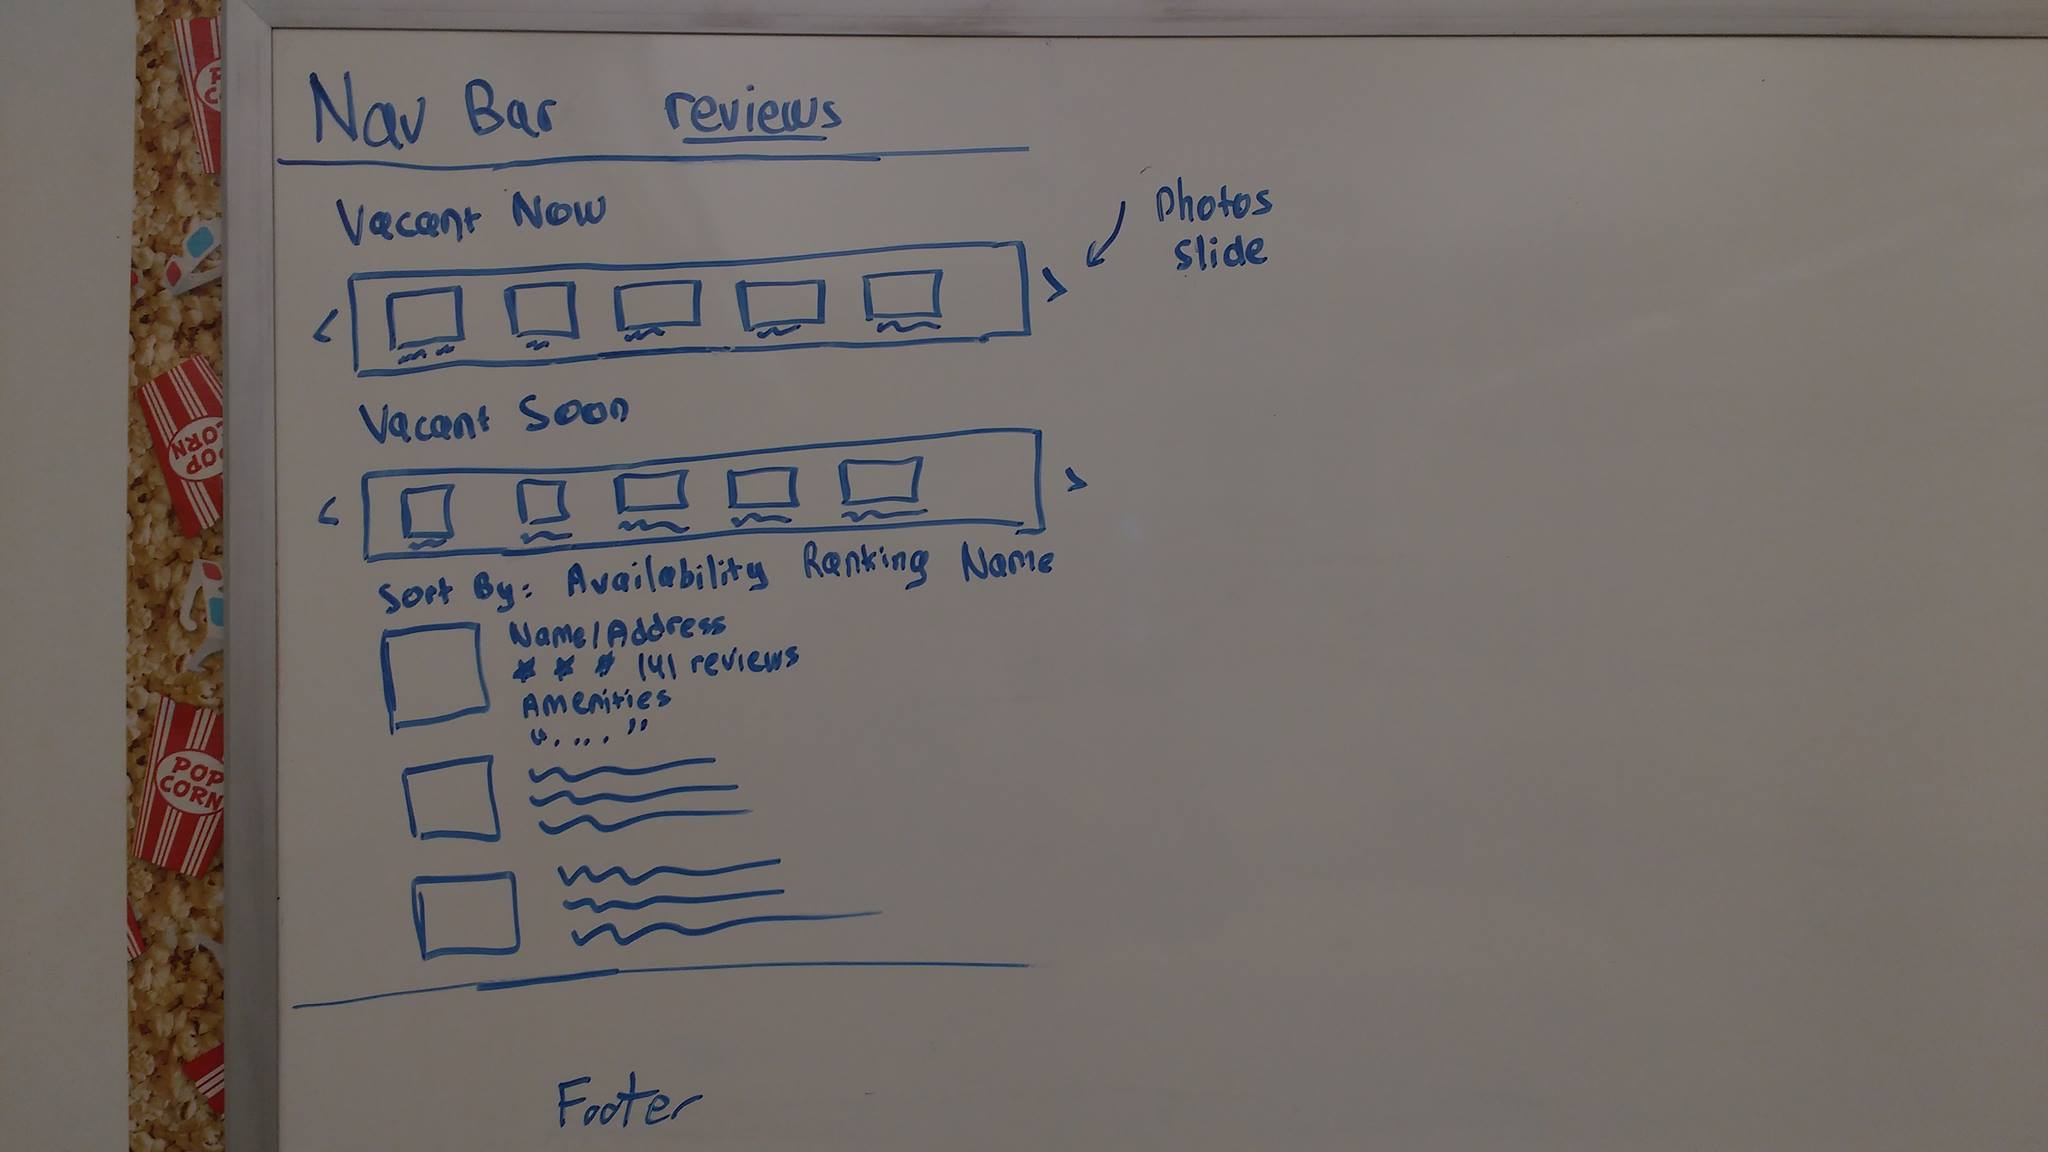 Nav Bar reviews
Vacant Now
Photos
slide
< >
Vacant Soon
< >
Sort By: Availability Ranking Name
Name/Address
★ ★ ★ 141 reviews
Amenities
".... "
Footer
POP
CORN
POP
CORN